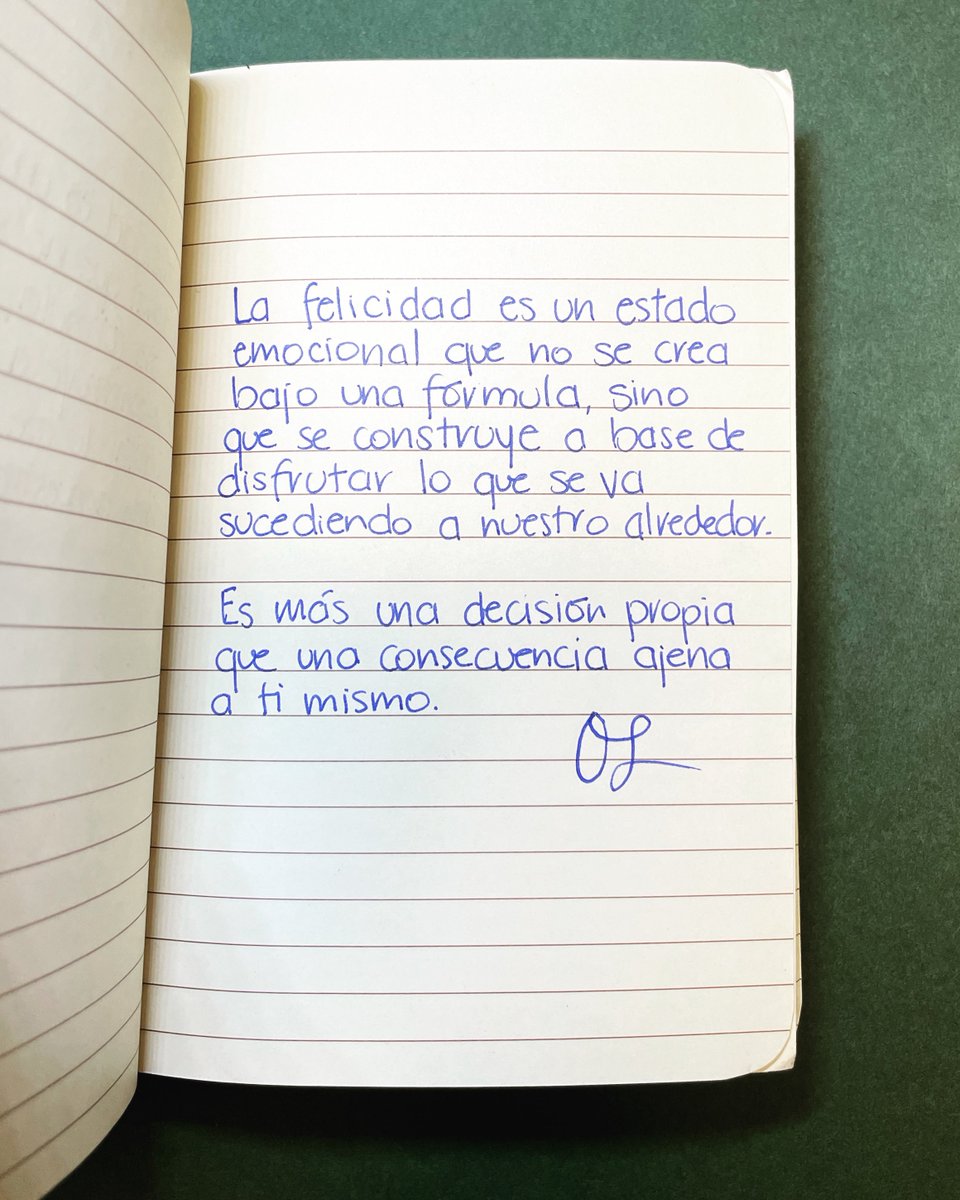 La felicidad es un estado
emocional que no se crea
bajo una fórmula, sino
que se construye a base de
disfrutar lo que se va
sucediendo a nuestro alrededor.
Es más una decisión propia
que una consecuencia ajena
a ti mismo.
OL